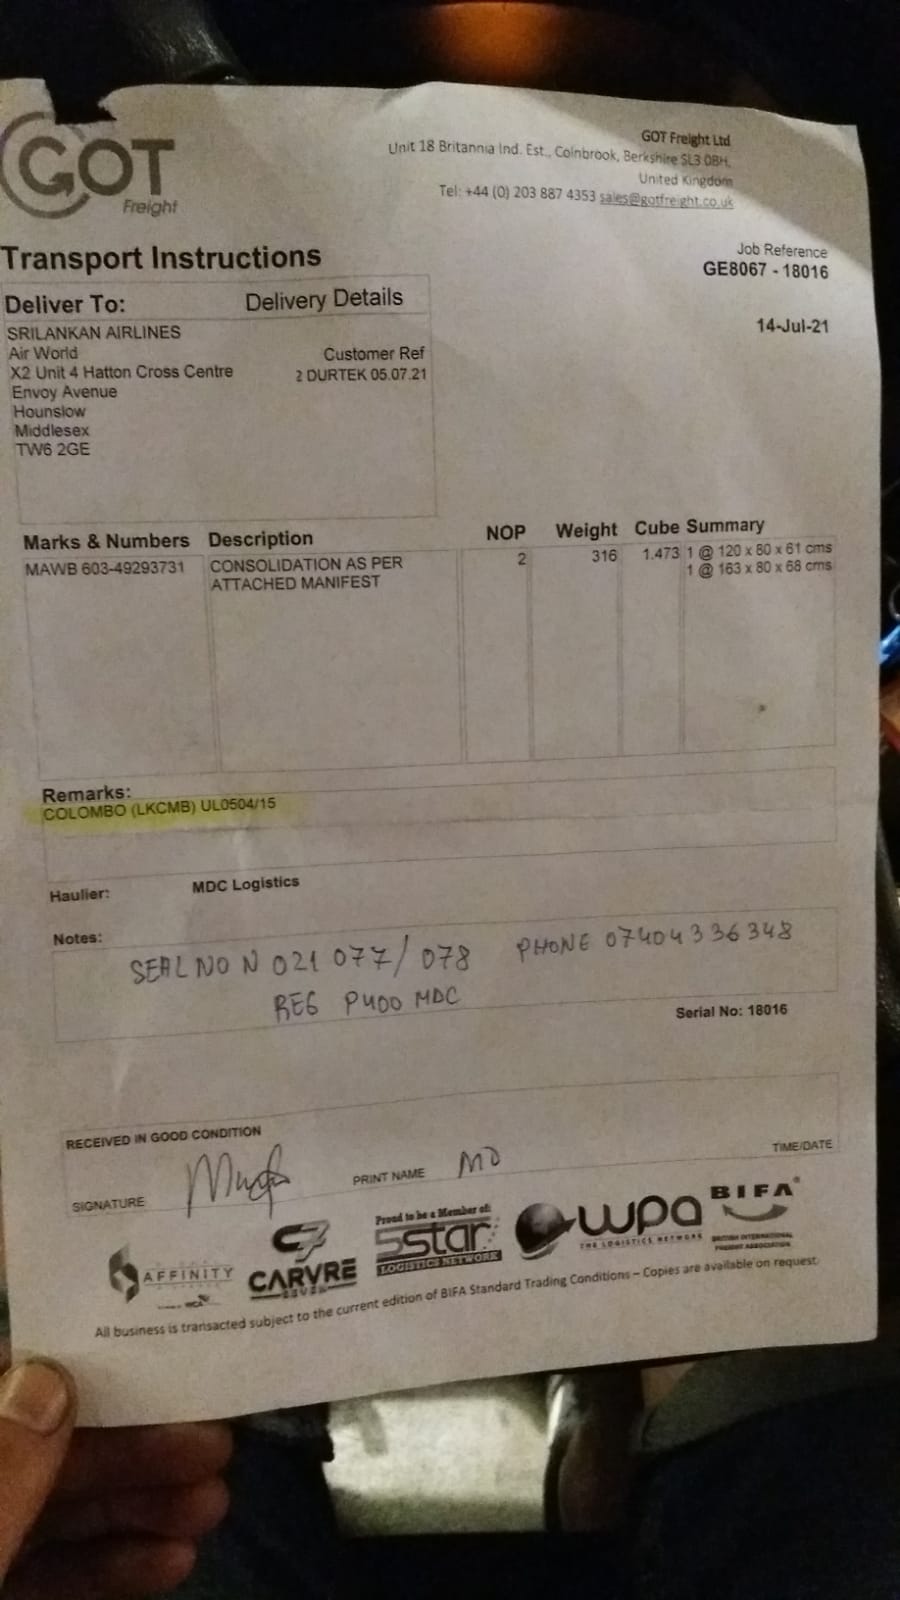 GOT
Freight
GOT Freight Ltd
Unit 18 Britannia Ind. Est., Colnbrook, Berkshire SL3 0BH,
United Kingdom
Tel: +44 (0) 203 887 4353 sales@gotfreight.co.uk
Transport Instructions
Job Reference
GE8067 - 18016
14-Jul-21
Deliver To: Delivery Details
SRILANKAN AIRLINES
Air World Customer Ref
X2 Unit 4 Hatton Cross Centre 2 DURTEK 05.07.21
Envoy Avenue
Hounslow
Middlesex
TW6 2GE
Marks & Numbers Description NOP Weight Cube Summary
MAWB 603-49293731 CONSOLIDATION AS PER 2 316 1.473 1 @ 120 x 80 x 61 cms
ATTACHED MANIFEST 1 @ 163 x 80 x 68 cms
Remarks:
COLOMBO (LKCMB) UL0504/15
Haulier: MDC Logistics
Notes:
SEAL NO N 021 077/078 PHONE 07404336348
REG P400 MDC
Serial No: 18016
RECEIVED IN GOOD CONDITION
SIGNATURE PRINT NAME MO TIME/DATE
Proud to be a Member of:
AFFINITY
WCA
C7
CARVRE
SEVEN
5star
LOGISTICS NETWORK
wpa
THE LOGISTICS NETWORK
BIFA
BRITISH INTERNATIONAL
FREIGHT ASSOCIATION
All business is transacted subject to the current edition of BIFA Standard Trading Conditions – Copies are available on request.